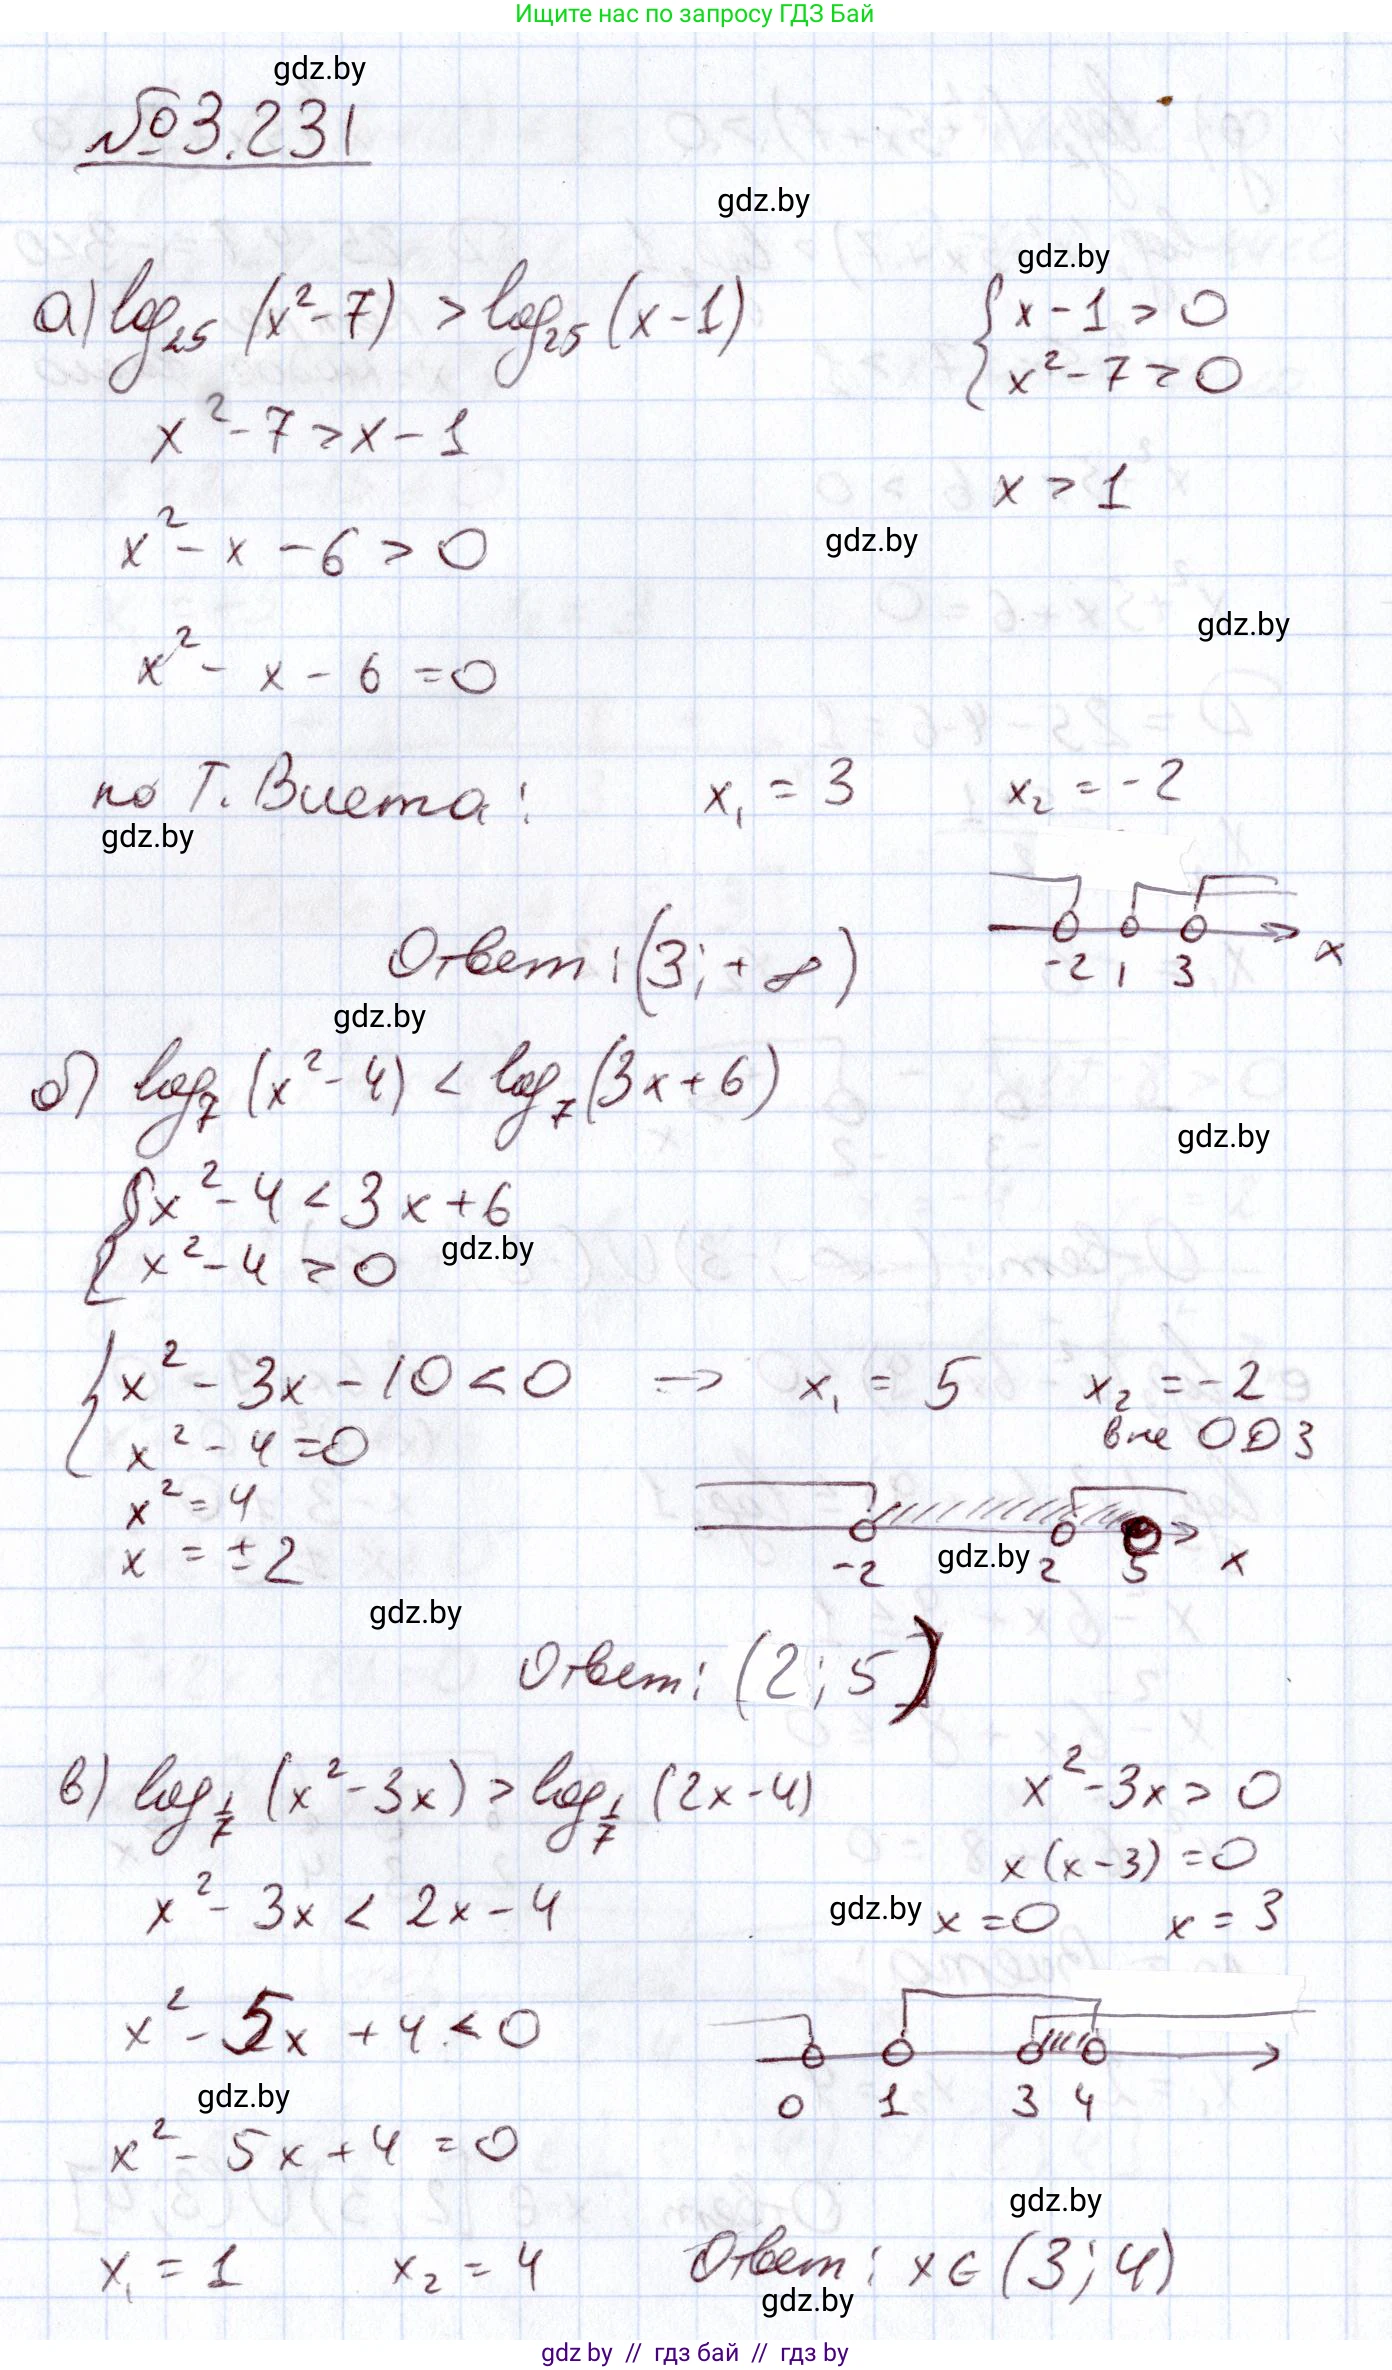 Ищите нас по запросу ГДЗ Бай
gdz.by
№3.231
gdz.by
gdz.by
а) log₂₅ (x² - 7) > log₂₅ (x - 1)
{ x - 1 > 0
x² - 7 > 0
x² - 7 > x - 1
x > 1
x² - x - 6 > 0
gdz.by
gdz.by
x² - x - 6 = 0
по Т. Виета: x₁ = 3 x₂ = -2
gdz.by
-2 1 3 x
Ответ: (3; +∞)
gdz.by
б) log₇ (x² - 4) < log₇ (3x + 6)
gdz.by
{ x² - 4 < 3x + 6
x² - 4 > 0
gdz.by
{ x² - 3x - 10 < 0 → x₁ = 5 x₂ = -2
вне ОДЗ
x² - 4 = 0
x² = 4
x = ±2
-2 2 5 x
gdz.by
gdz.by
Ответ: (2; 5)
в) log_{1/7} (x² - 3x) > log_{1/7} (2x - 4)
x² - 3x > 0
x(x - 3) = 0
x² - 3x < 2x - 4
gdz.by
x = 0 x = 3
x² - 5x + 4 < 0
0 1 3 4
gdz.by
x² - 5x + 4 = 0
gdz.by
x₁ = 1 x₂ = 4
Ответ: x ∈ (3; 4)
gdz.by
gdz by // гдз бай // гдз by